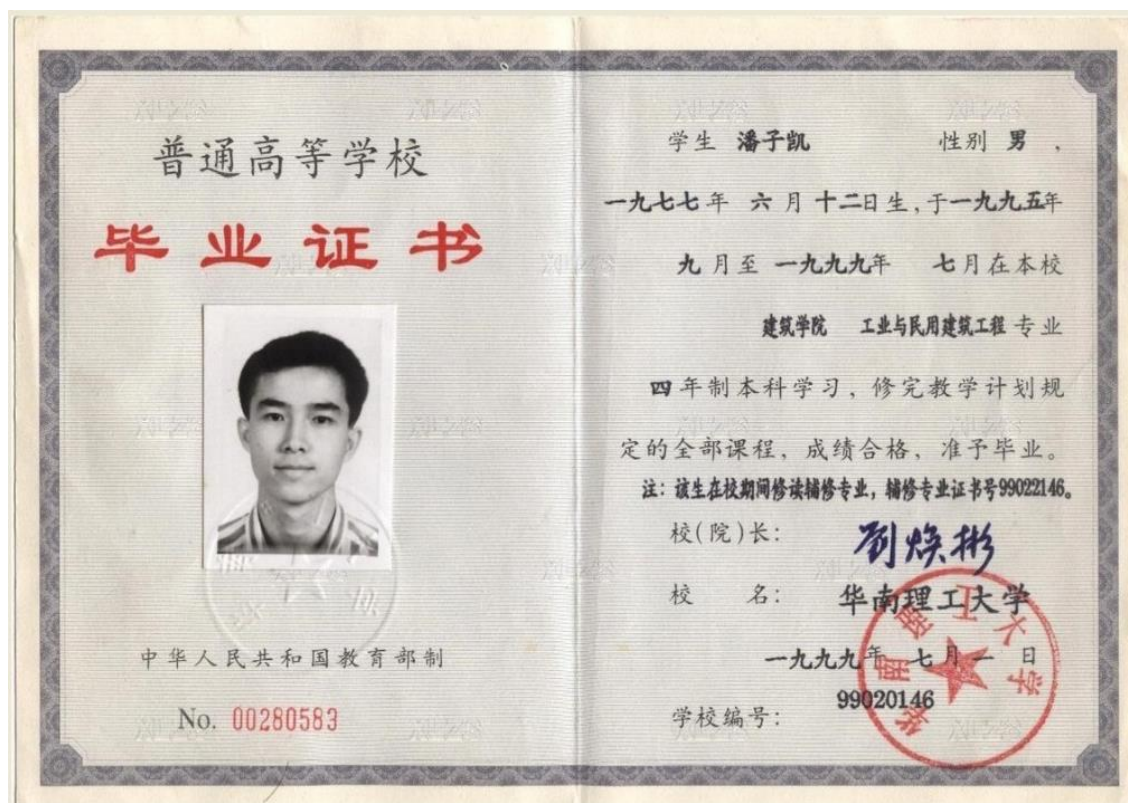 普通高等学校
毕业证书
中华人民共和国教育部制
No. 00280583
学生 潘子凯 性别 男，
一九七七年 六月十二日生，于一九九五年
九月至一九九九年 七月在本校
建筑学院 工业与民用建筑工程专业
四年制本科学习，修完教学计划规
定的全部课程，成绩合格，准予毕业。
注：该生在校期间修读辅修专业，辅修专业证书号99022146。
校(院)长： 劉焕彬
校 名： 华南理工大学
一九九九年 七月一日
99020146
学校编号：
华南理工大学